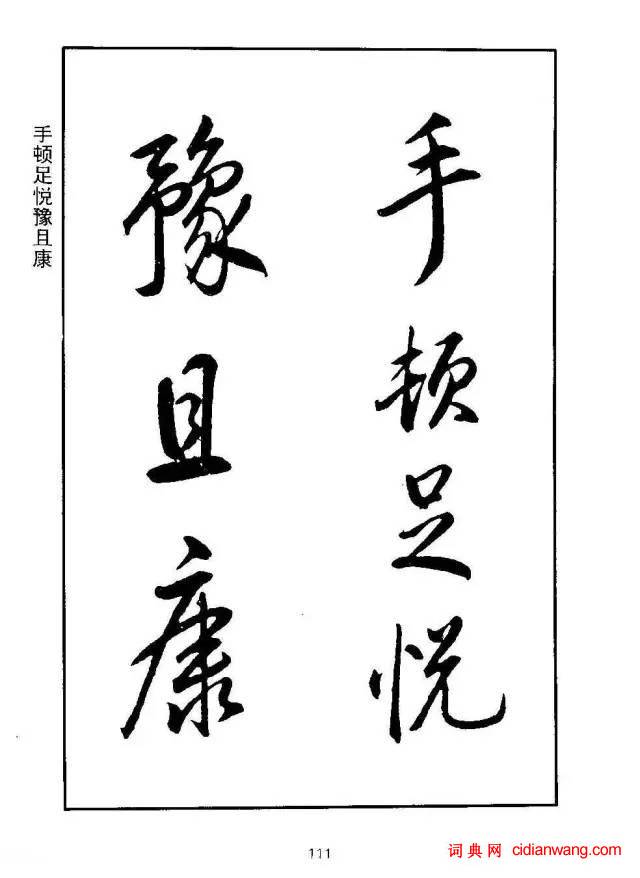 手顿足悦
豫且康
手顿足悦豫且康
111
词典网 cidianwang.com